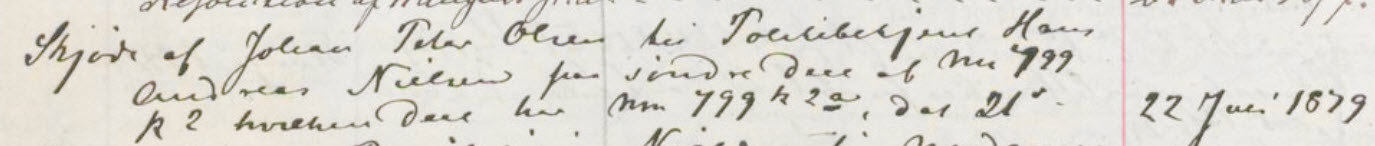 Skjøde af Johan Peter Olsen til Politibetjent Hans
Andreas Nielsen paa søndre Deel af No 799
k 2 hvilken Deel har No 799 k 2 a, dat 21 22 Juli 1879